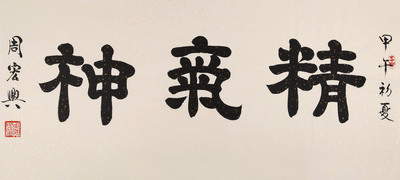 甲午初夏
精氣神
周宏興